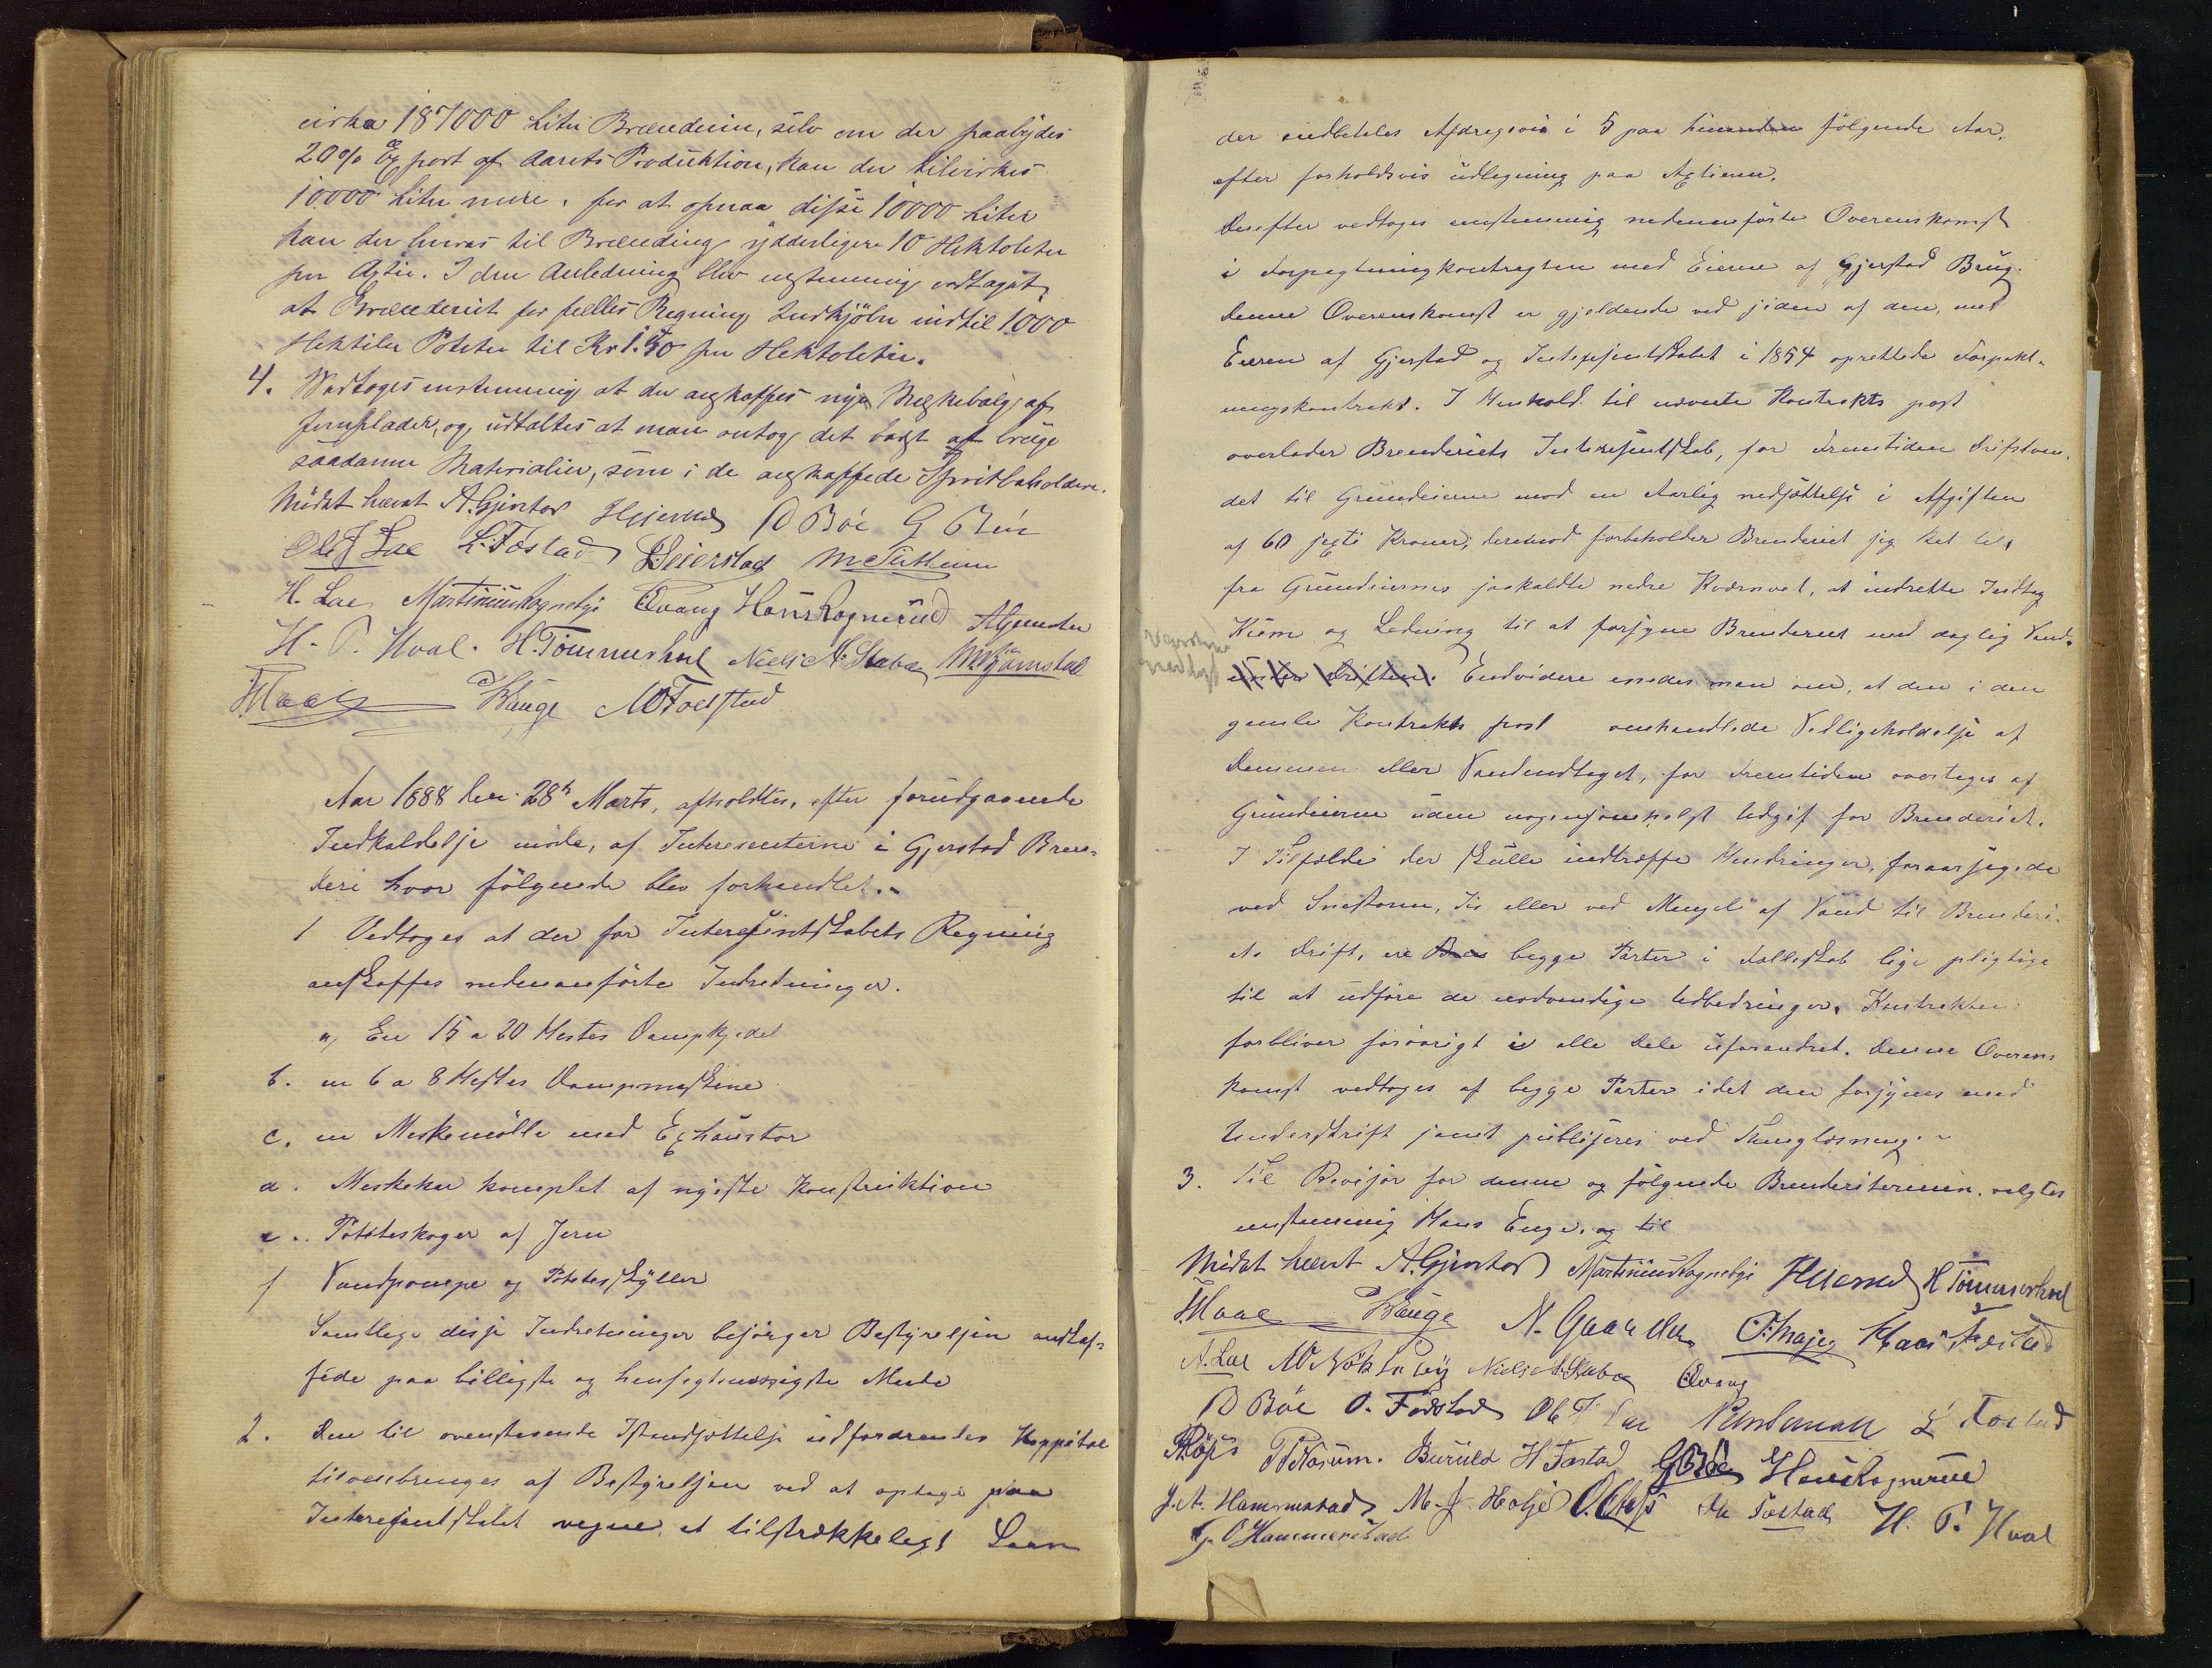 cirka 187000 Liter Brændevin, selv om der paabydes
20% Export af Aarets Produktion, kan der tilvirkes
10.000 Liter mere. for at opnaa disse 10000 Liter
kan der leveres til Brænding ydderligere 10 Hektoliter
per Axtie. I den Anledning blev enstemmig vedtaget,
at Brænderiet for fælles Regning Indkjøber indtil 1000
Hektoliter Poteter til Kr 1.50 per Hektoliter.
4. Vedtoges enstemmig at der anskaffes nye Meskebalg af
Jernplader, og udtaltes at man antog det bedst at bruge
saadanne Materialier, som i de anskaffede Spiritbeholdere.
Mødet hævet A. Gjestad Hejerud D Bøe G Bøe
Ole J Lae L. Fostad Seierstad
H. Lae Martinius Rognebye Qvang Hans Rognerud
H. P. Hval. H. Tömmerhol Niels A. Staba
Maae Bauge
Aar 1888 den 28de Marts, afholdtes, efter forudgaaende
Indkaldelse møde, af Interesenterne i Gjestad Bræn-
deri hvor følgende blev forhandlet.-
1 Vedtoges at der for Interesentskabets Regning
anskaffes nedenanførte Indretninger.
a, En 15 a 20 Hestes Dampkjedel
b. en 6 a 8 Hestes Dampmaskine
c. en Meskemølle med Exhaustor
d. Meskekar komplet af nyeste Konstruktion
e.. Poteteskoger af Jern
f Vandpompe og Potetesskyller
Samtlige disse Indretninger besørger Bestyrelsen anskaf-
fede paa billigste og hensigtsmæssigste Maade
2. Den til ovenstaaende Istandsættelse udfordrendes Kappital
tilveiebringes af Bestyrelsen ved at optage paa
Interesentskabet vegne et tilstrækkeligt Laan
der indbetales Afdragsvis i 5 paa hinanden følgende Aar,
efter forholdsvis udlegning paa Axtierne.
Derefter vedtoges enstemmig nedenanførte Overenskomst
i Forpagtningskontragten med Eierne af Gjerstad Brug.
Denne Overenskomst er gjeldende ved siden af den, med
Eieren af Gjerstad og Interessentskabet i 1854 oprettede Forpakt-
ningskontrakt. I Henhold til nævnte Kontrakts post
overlader Brenderiets Interesentskab, for Fremtiden Driftsvan-
det til Grundeierne mod en Aarlig nedsættelse i Afgiften
af 60 sexti Kroner; derimod forbeholder Brenderiet sig Ret til,
fra Grundeiernes saakaldte nedre Kværnvel, at indrette Indtag
Kum og Ledning til at forsyne Brenderiet med daglig Vand.
under driften. Endvidere enedes man om, at den i den
gamle Kontrakts post omhandlede Vedligeholdelse af
Dammen eller Vandindtaget, for Fremtiden overtages af
Grundeierne uden nogensomhelst Udgift for Brenderiet.
I Tilfælde der skulle indtræffe Hindringer, foraarsagede
ved Snestorm, Iis eller ved Mangel af Vand til Brenderi-
ets Drift, ere begge Parter i Fælleskab lige pligtige
til at udføre de nødvendige Udbedringer. Kontrakten
forbliver forøvrigt i alle Dele uforandret. Denne Overens
komst vedtoges af begge Parter idet den forsynes med
Underskrift samt publiseres ved Thinglæsning.-
3. Til Revisor for denne og følgende Brenderitermin. valgtes
enstemmig Hans Enge. og til
Mødet hævet A. Gjestad Martinius Rognebye Hejerud H Tömmerhol
Maae Bauge N. Gaarder
A. Lae Niels A Staba Qvang
D Bøe O. Fostad Ole J Lae L Fostad
Buruld H Fostad G Bøe Hans Rognerud
J. A. Hammerstad M. J. Holje Fostad H. P. Hval
G. O Hammerstad